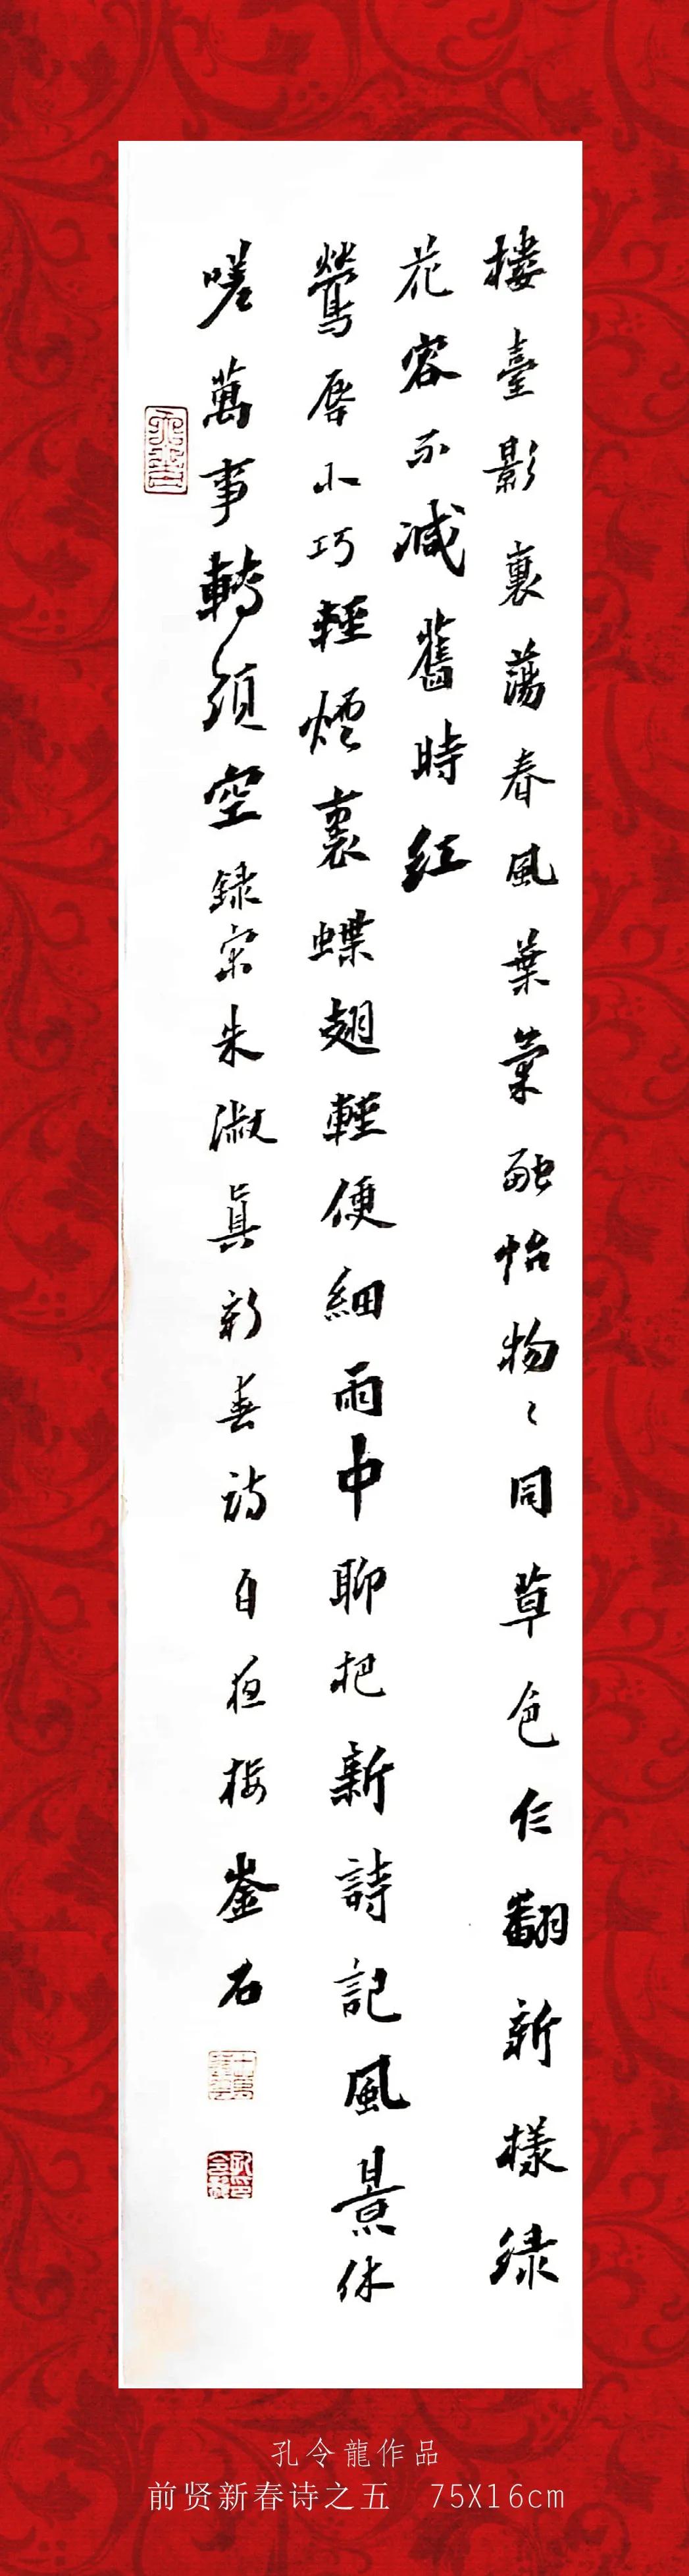 樓臺影裏蕩春風葉葉融怡物〻同草色乍翻新樣綠
花容不減舊時紅
鶯唇小巧輕煙裏蝶翅輕便細雨中聊把新詩記風景休
嗟萬事轉頭空録宋朱淑真新春詩自樓崟石
孔令龍作品
前贤新春诗之五 75X16cm